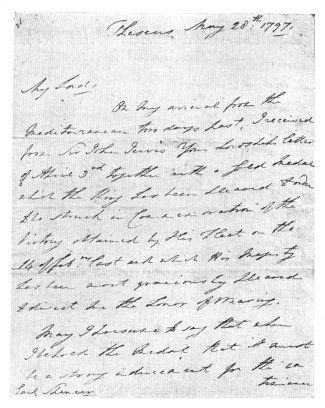 Theseus May 28th: 1797.
My Lord,
On my arrival from the
Mediterranean two days past, I received
from Sir John Jervis Your Lordships letter
of April 3rd together with a Gold Medal
which the King has been pleased to order
to be struck in Commemoration of the
Victory obtained by His Fleet on the
14 of Feby. last and which His Majesty
has been most graciously pleased
to direct me the honor of wearing.
May I presume to say that when
I behold the Medal that it must
be a strong inducement for the con
Earl Spencer tinuance